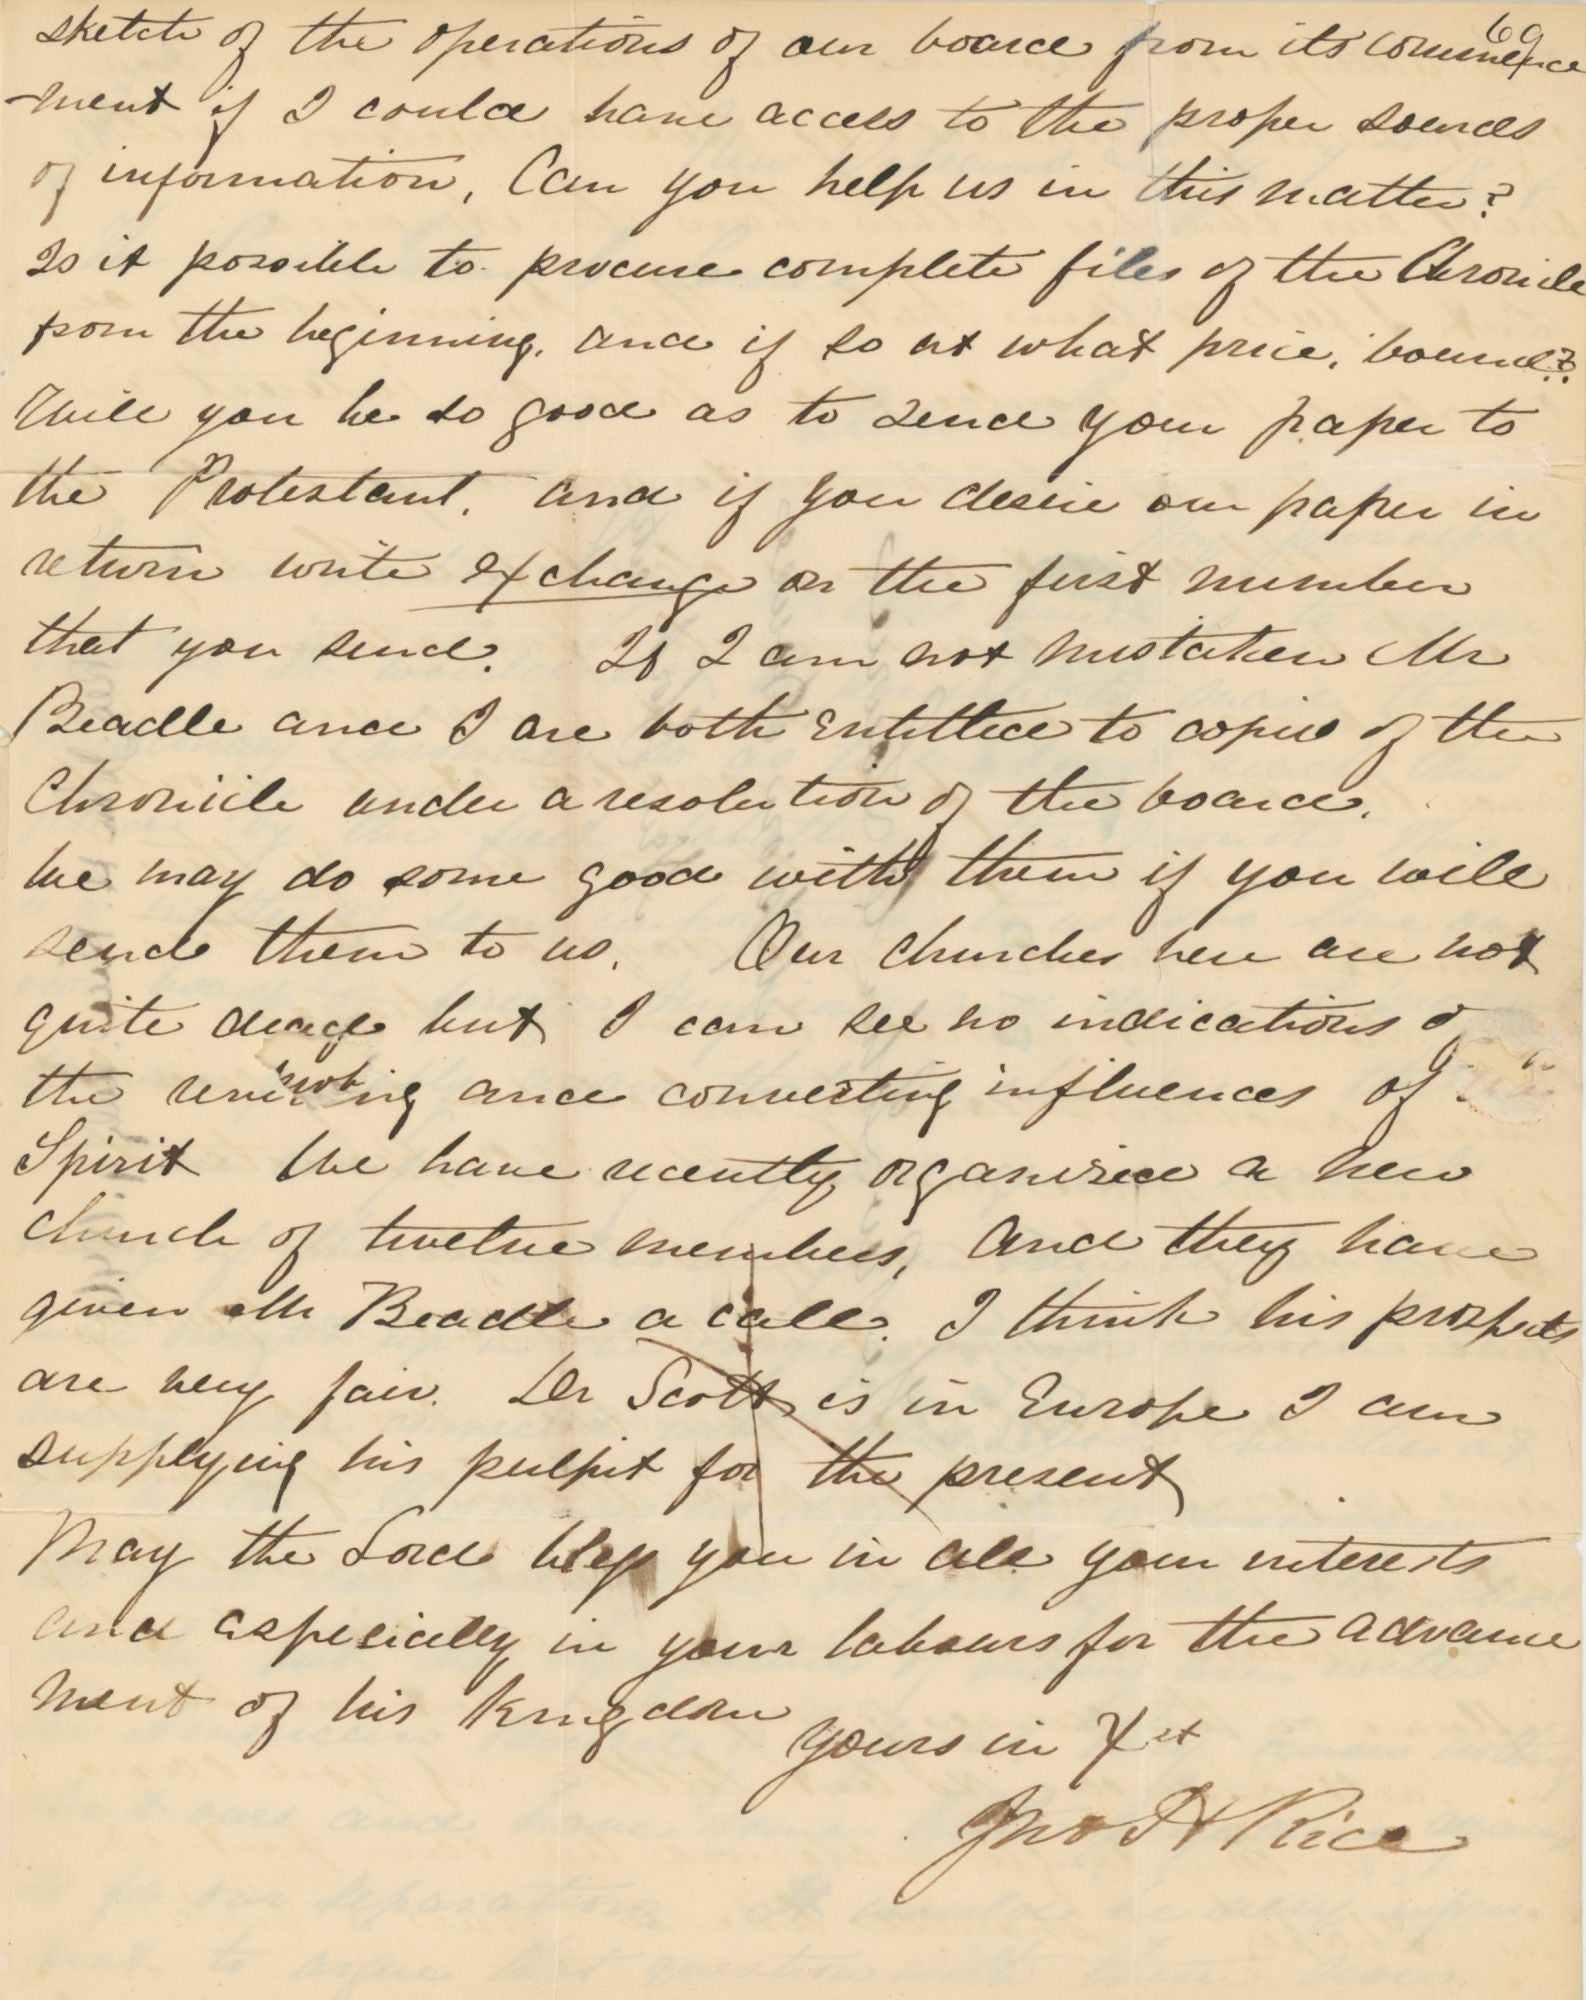 69
sketch of the operations of our board from its commence
-ment if I could have access to the proper sources
of information, Can you help us in this matter?
Is it possible to procure complete files of the Chronicle
from the beginning, and if so at what price, bound?
Will you be so good as to send your paper to
the Protestant. and if you desire our paper in
return write exchange on the first number
that you send. If I am not mistaken Mr
Beadle and I are both entitled to copies of the
Chronicle under a resolution of the board.
We may do some good with them if you will
send them to us. Our churches here are not
quite dead but I can see no indications of
the reviving and converting influences of
Spirit We have recently organized a new
church of twelve members, and they have
given Mr Beadle a call. I think his prospects
are very fair. Dr Scott is in Europe I am
supplying his pulpit for the present
May the Lord bless you in all your interests
and aspecially in your labours for the advance
ment of his Kingdom
yours in Xst
Jno H Rice